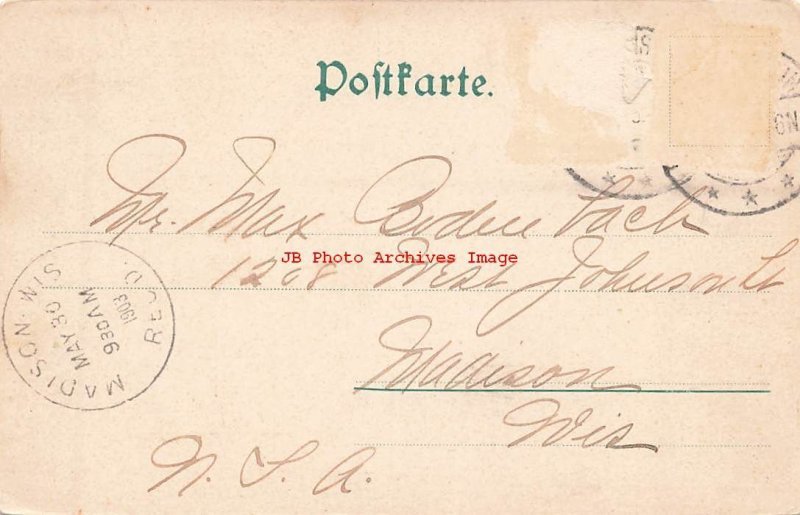 Postkarte.
Mr. Max Bodenbach
JB Photo Archives Image
1208 West Johnson St
Madison
Wis
U. S. A.
MADISON. WIS
MAY 30
930AM
1903
REC'D.